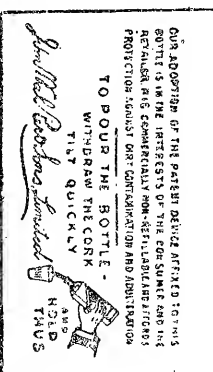 OUR ADOPTION OF THE PATENT DEVICE AFFIXED TO THIS
BOTTLE IS IN THE INTERESTS OF THE CONSUMER AND THE
RETAILER. IT IS COMMERCIALLY NON-REFILLABLE AND AFFORDS
PROTECTION AGAINST DIRT CONTAMINATION AND ADULTERATION
TO POUR THE BOTTLE -
WITHDRAW THE CORK
TILT QUICKLY
AND
HOLD
THUS
Sons, Limited